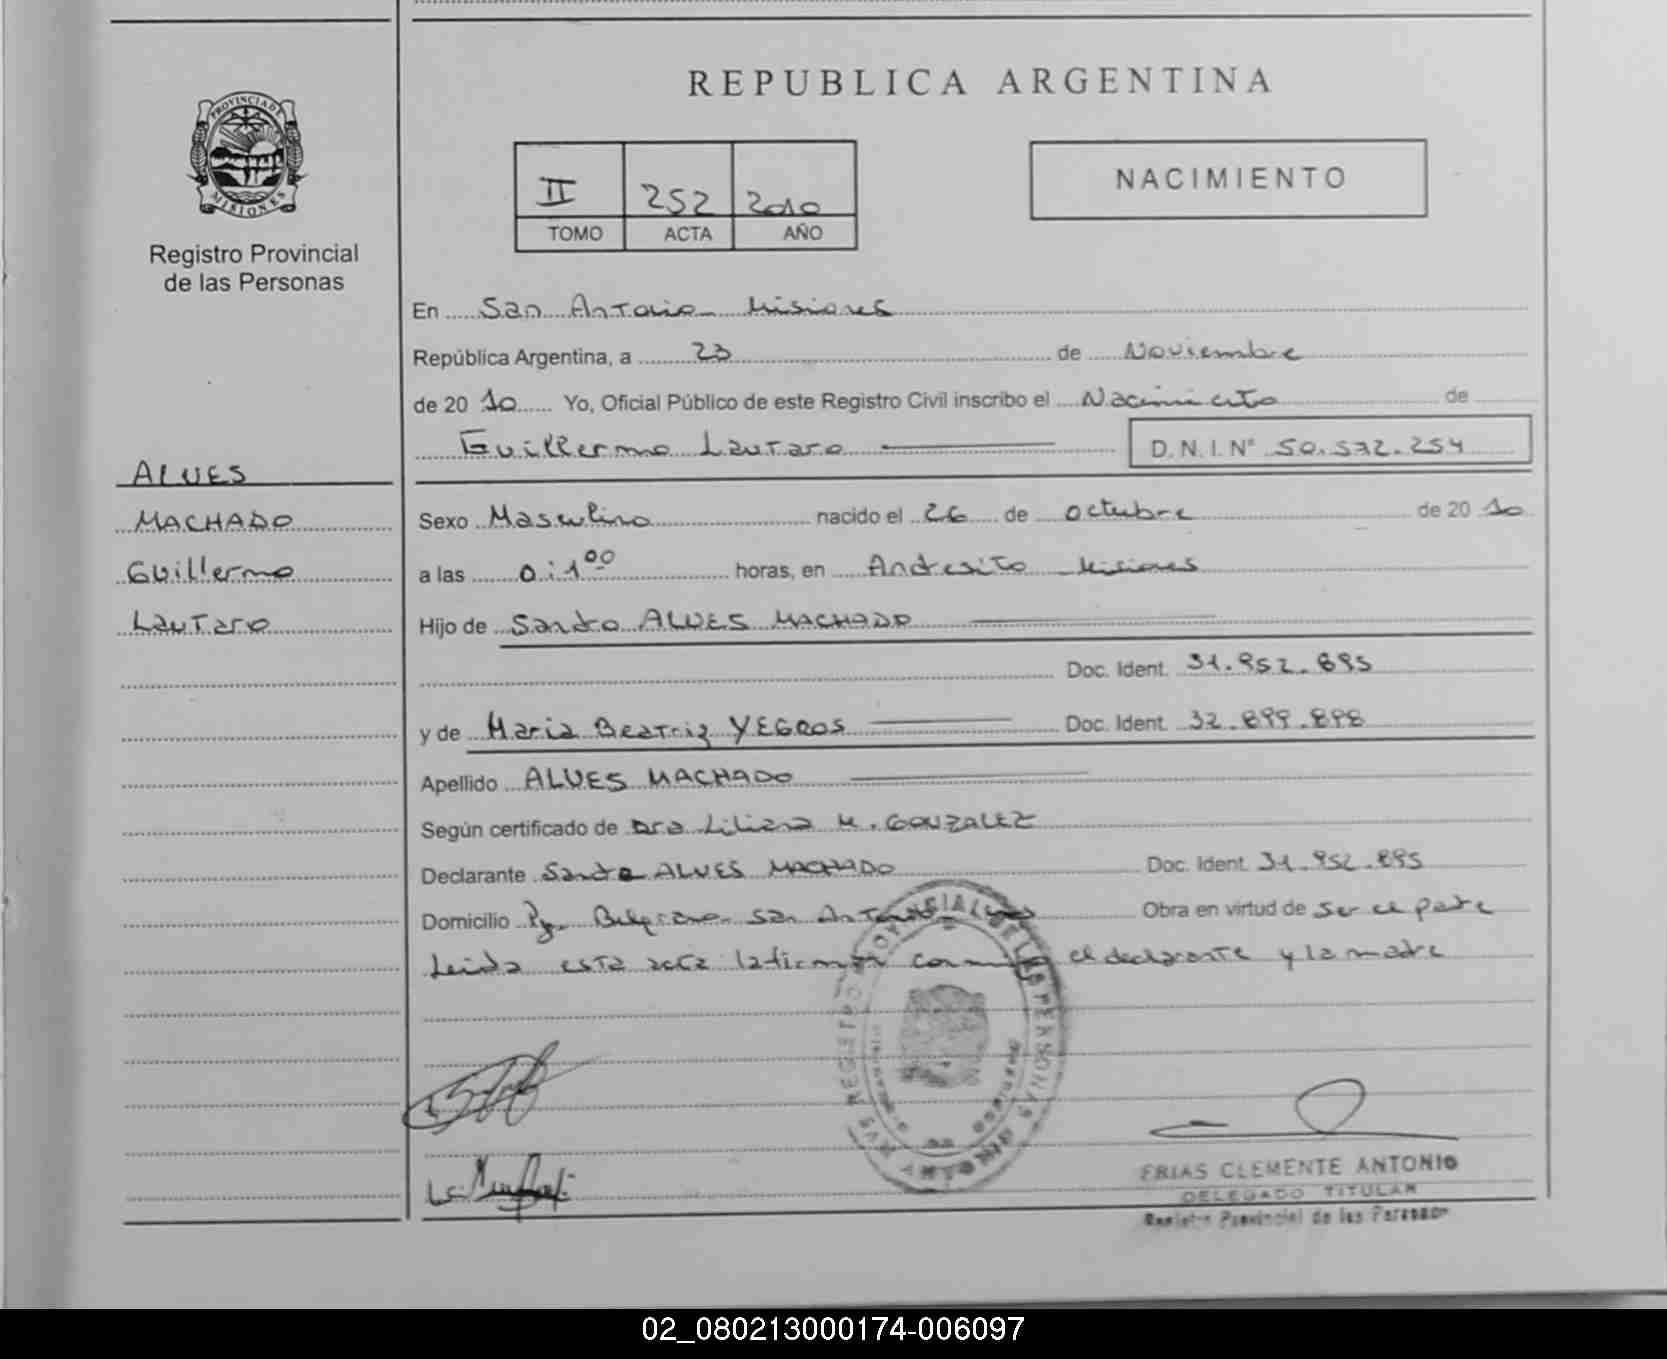 REPUBLICA ARGENTINA
PROVINCIA DE
MISIONES
Registro Provincial
de las Personas
II 252 2010
TOMO ACTA AÑO
NACIMIENTO
En San Antonio Misiones
República Argentina, a 23 de Noviembre
de 20 10 Yo, Oficial Público de este Registro Civil inscribo el Nacimiento de
Guillermo Lautaro D.N.I. Nº 50.572.254
ALVES
MACHADO
Guillermo
Lautaro
Sexo Masculino nacido el 26 de octubre de 20 10
a las 0:1 00 horas, en Andresito Misiones
Hijo de Sandro ALVES MACHADO
Doc. Ident. 31.952.895
y de Maria Beatriz YEGROS Doc. Ident. 32.899.898
Apellido ALVES MACHADO
Según certificado de Dra Liliana M. GONZALEZ
Declarante Sandro ALVES MACHADO Doc. Ident. 31.952.895
Domicilio Belgrano San Antonio Obra en virtud de ser el padre
Leida esta acta la firman conmigo el declarante y la madre
REGISTRO PROVINCIAL DE LAS PERSONAS
FRIAS CLEMENTE ANTONIO
DELEGADO TITULAR
Registro Provincial de las Personas
02_080213000174-006097